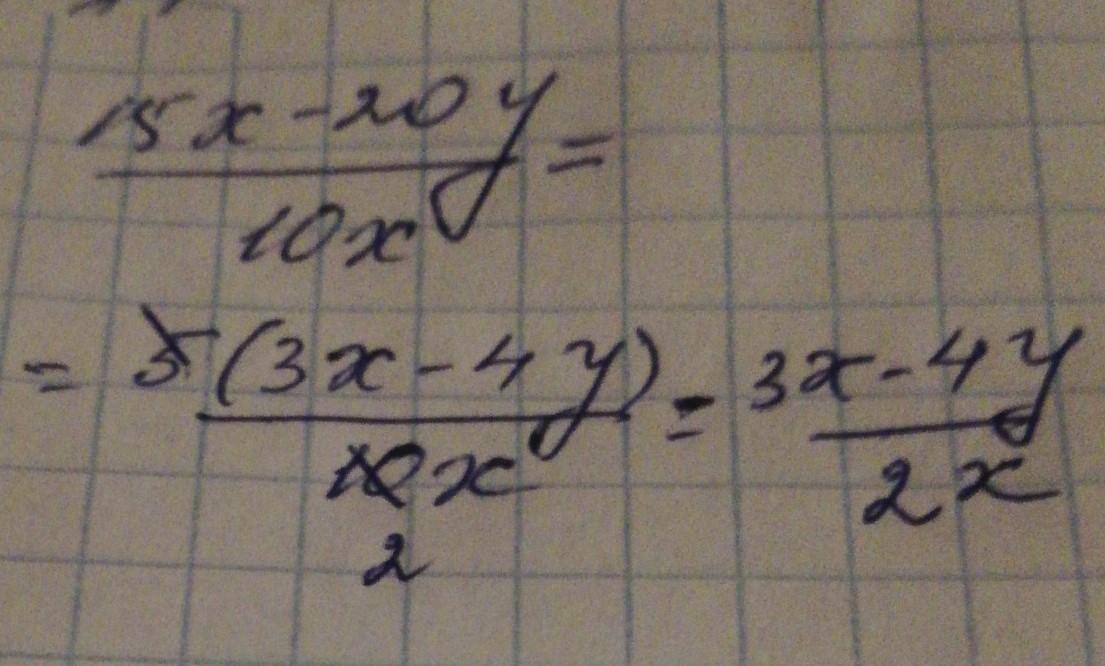 15x-20y
10x
=
= 5(3x-4y)
10x
2
= 3x-4y
2x